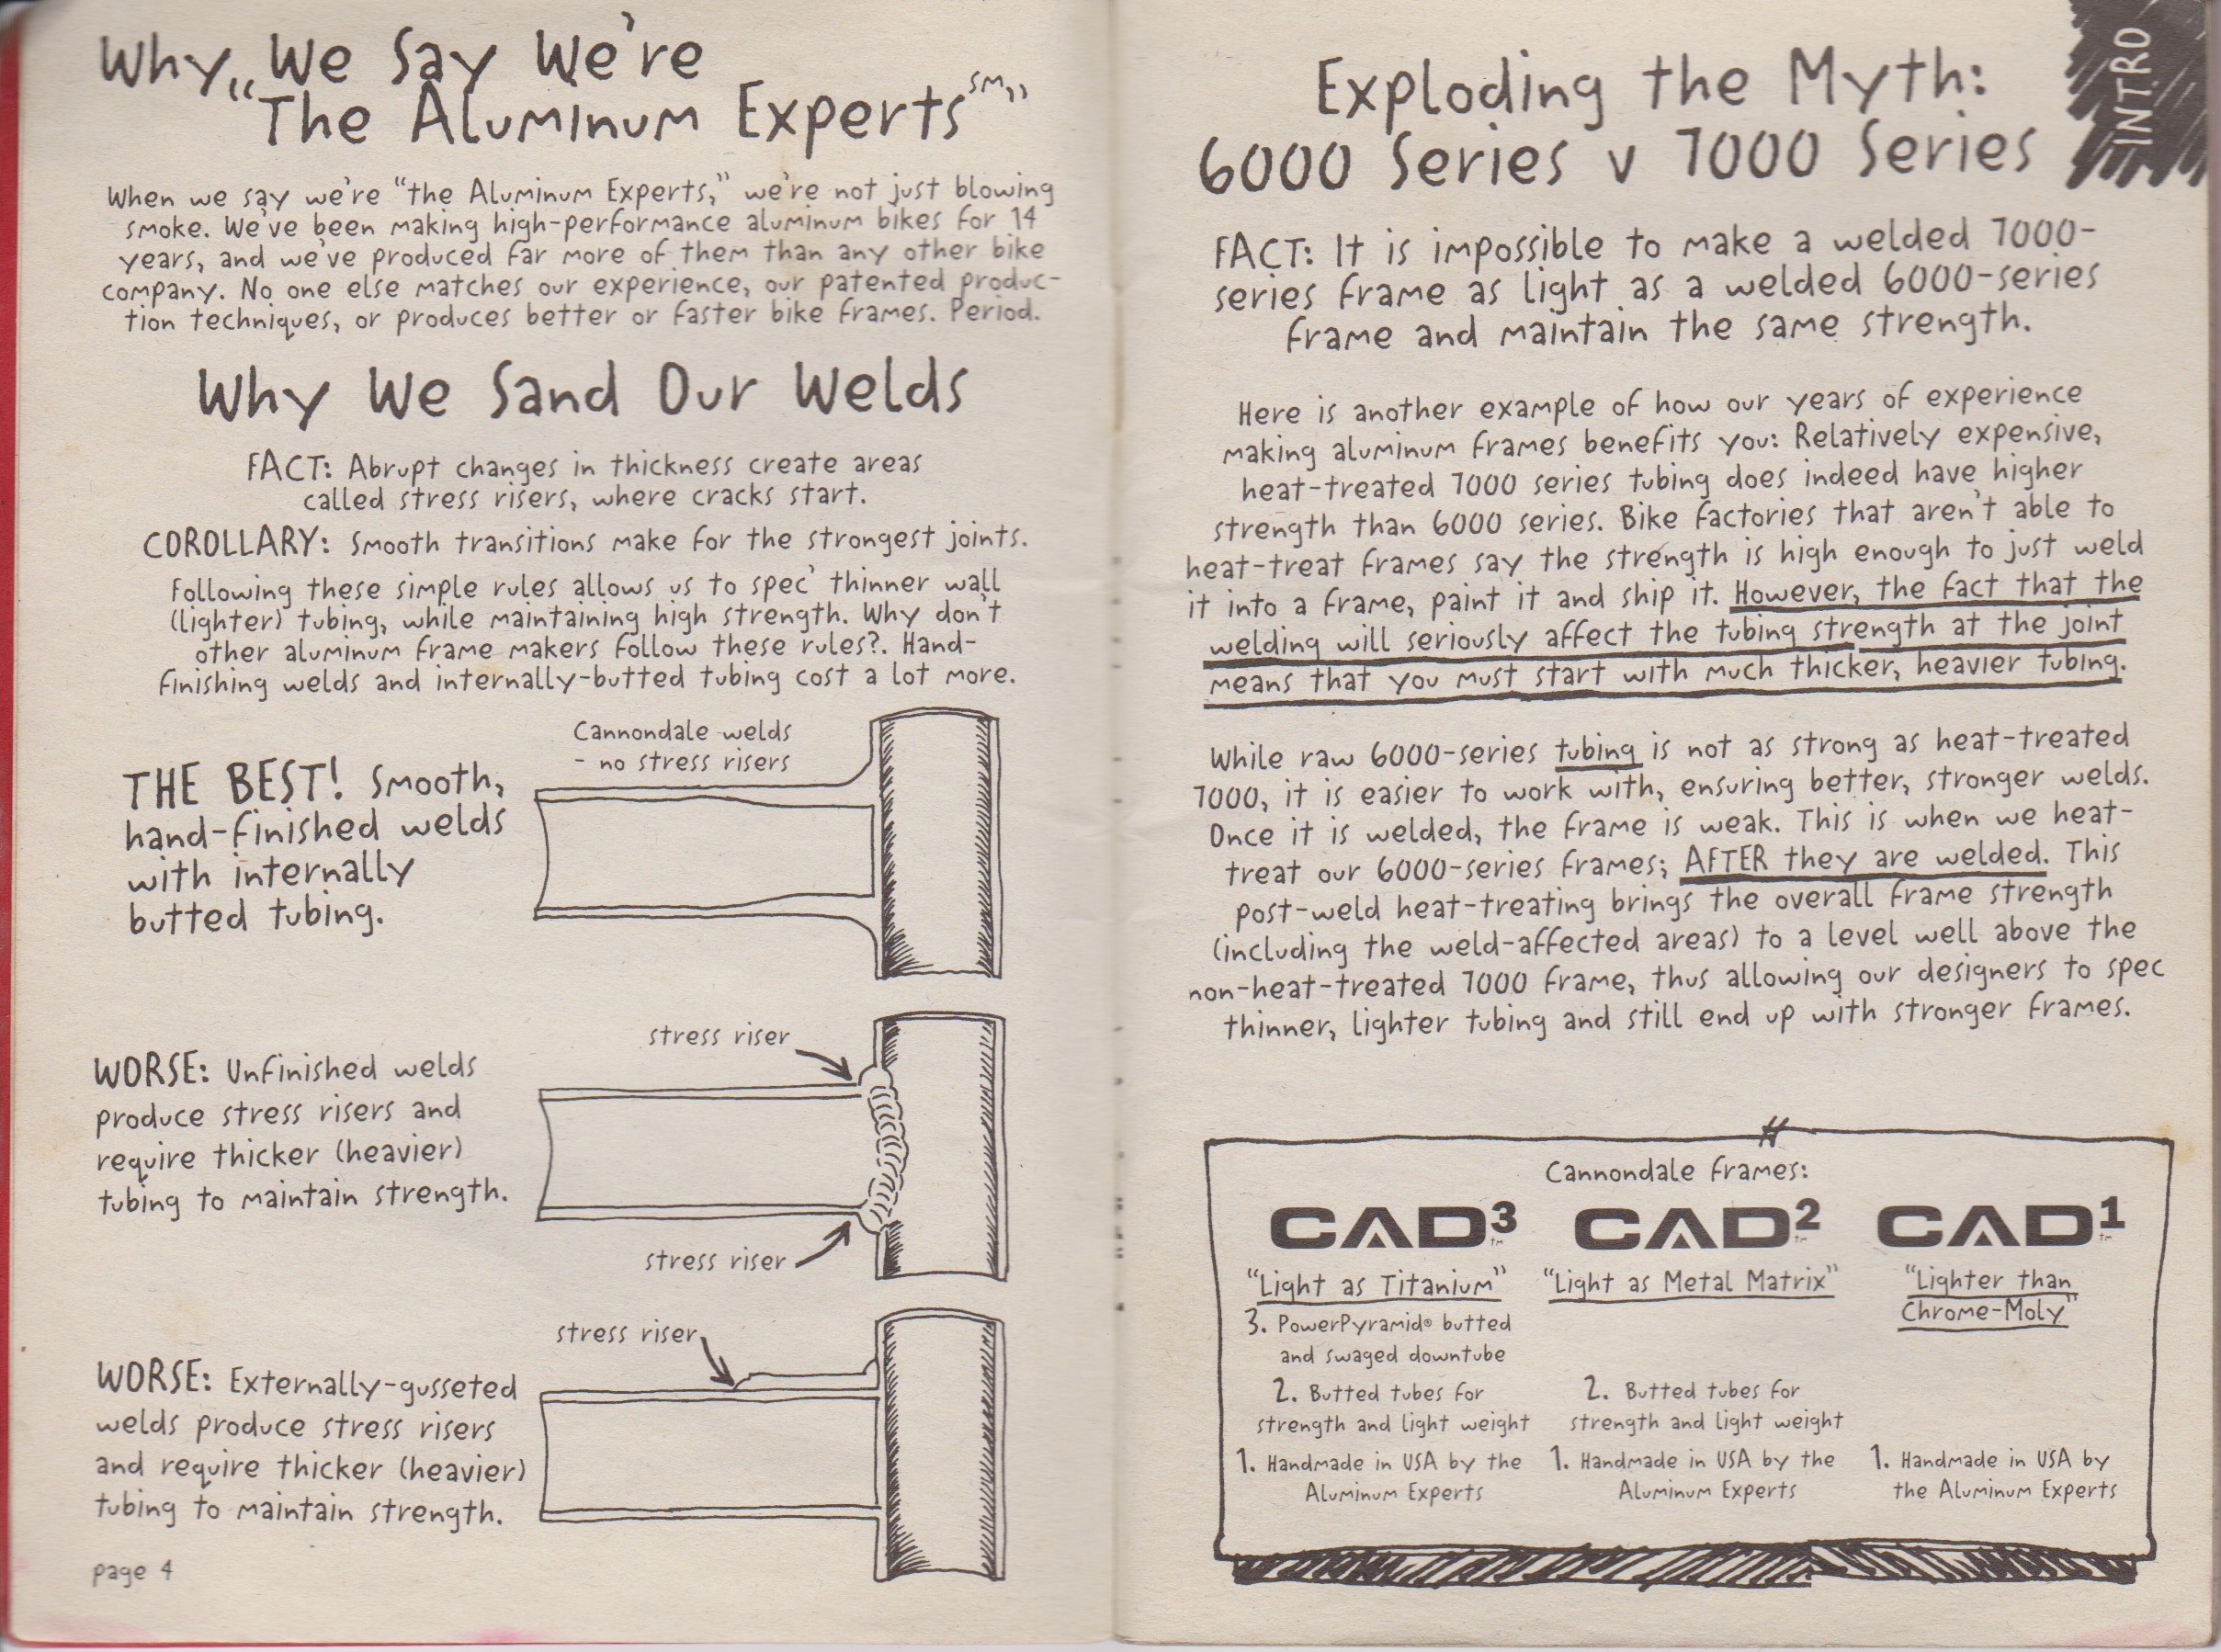 Why We Say We're
"The Aluminum Experts℠"
When we say we're "the Aluminum Experts," we're not just blowing
smoke. We've been making high-performance aluminum bikes for 14
years, and we've produced far more of them than any other bike
company. No one else matches our experience, our patented produc-
tion techniques, or produces better or faster bike frames. Period.
Why We Sand Our Welds
FACT: Abrupt changes in thickness create areas
called stress risers, where cracks start.
COROLLARY: Smooth transitions make for the strongest joints.
Following these simple rules allows us to spec' thinner wall
(lighter) tubing, while maintaining high strength. Why don't
other aluminum frame makers follow these rules?. Hand-
finishing welds and internally-butted tubing cost a lot more.
Cannondale welds
- no stress risers
THE BEST! Smooth,
hand-finished welds
with internally
butted tubing.
stress riser
WORSE: Unfinished welds
produce stress risers and
require thicker (heavier)
tubing to maintain strength.
stress riser
stress riser
WORSE: Externally-gusseted
welds produce stress risers
and require thicker (heavier)
tubing to maintain strength.
page 4
INTRO
Exploding the Myth:
6000 Series v 7000 Series
FACT: It is impossible to make a welded 7000-
series frame as light as a welded 6000-series
frame and maintain the same strength.
Here is another example of how our years of experience
making aluminum frames benefits you: Relatively expensive,
heat-treated 7000 series tubing does indeed have higher
strength than 6000 series. Bike factories that aren't able to
heat-treat frames say the strength is high enough to just weld
it into a frame, paint it and ship it. However, the fact that the
welding will seriously affect the tubing strength at the joint
means that you must start with much thicker, heavier tubing.
While raw 6000-series tubing is not as strong as heat-treated
7000, it is easier to work with, ensuring better, stronger welds.
Once it is welded, the frame is weak. This is when we heat-
treat our 6000-series frames; AFTER they are welded. This
post-weld heat-treating brings the overall frame strength
(including the weld-affected areas) to a level well above the
non-heat-treated 7000 frame, thus allowing our designers to spec
thinner, lighter tubing and still end up with stronger frames.
Cannondale frames:
CAD3™ CAD2™ CAD1™
"Light as Titanium" "Light as Metal Matrix" "Lighter than
Chrome-Moly"
3. PowerPyramid® butted
and swaged downtube
2. Butted tubes for 2. Butted tubes for
strength and light weight strength and light weight
1. Handmade in USA by the 1. Handmade in USA by the 1. Handmade in USA by
Aluminum Experts Aluminum Experts the Aluminum Experts